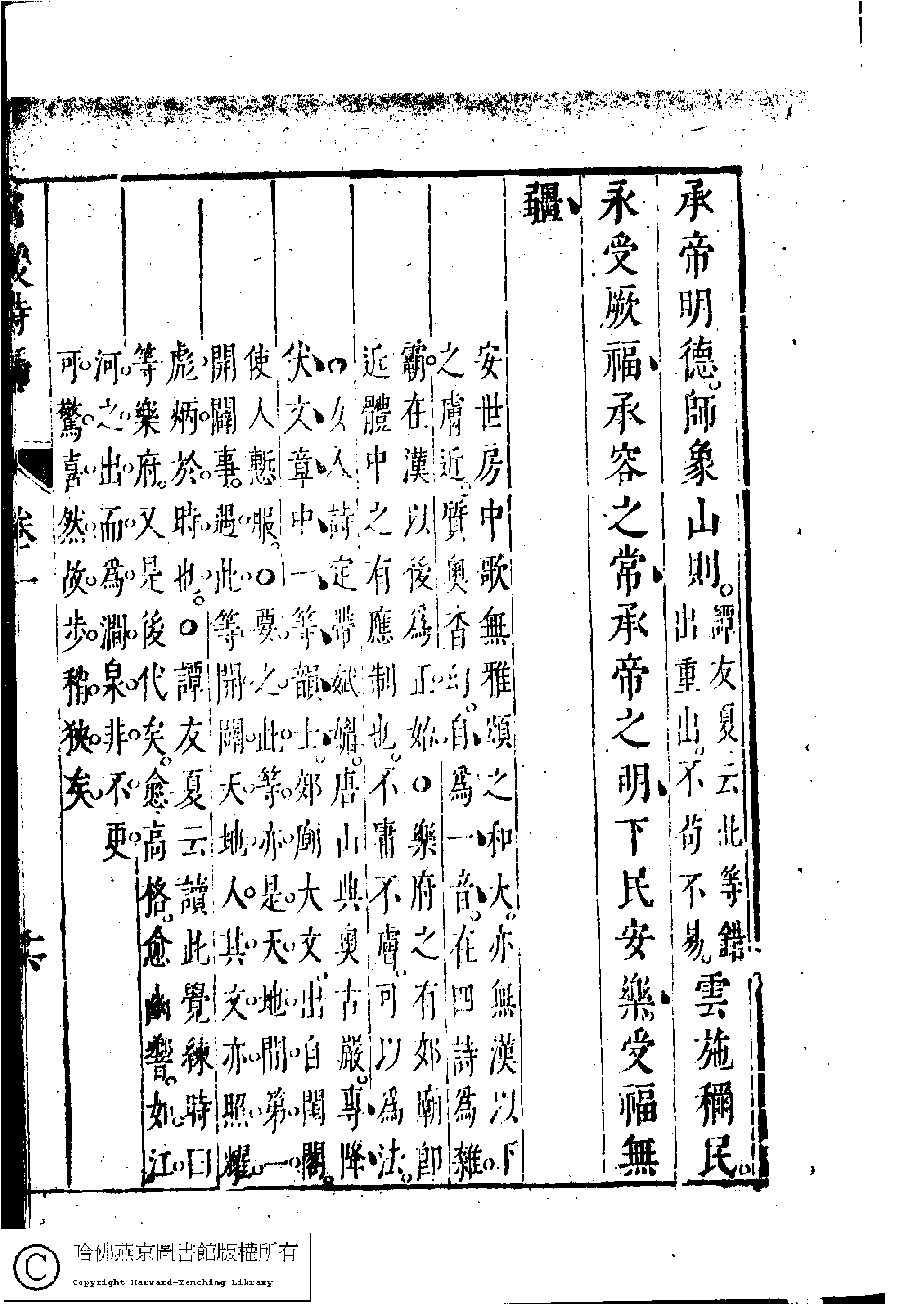 承帝明德。師象山則。譚友夏云此等錯出重出。不苟不易。雲施稱民。
永受厥福承容之常承帝之明下民安樂受福無
疆
安世房中歌無雅頌之和大。亦無漢以下
之膚近。質奧杳幻。自為一音。在四詩為雜
霸。在漢以後為正始。○樂府之有郊廟即
近體中之有應制也。不庸不膚。可以為法。
女人詩定帶妩媚。唐山典奧古嚴。專降
伏文章中一等韻士。郊廟大文出自閨閣。
使人慙服。○要之此等亦是天地間第一
開闢事。遇此等開闢天地人。其文亦照耀
彪炳於時也。○譚友夏云讀此覺練時日
等樂府。又是後代矣。愈高恪。愈幽響。如江
河之出而為澗泉非不更
可驚喜。然故步稍狹矣
卷一
六
哈佛燕京圖書館版權所有
Copyright Harvard-Yenching Library